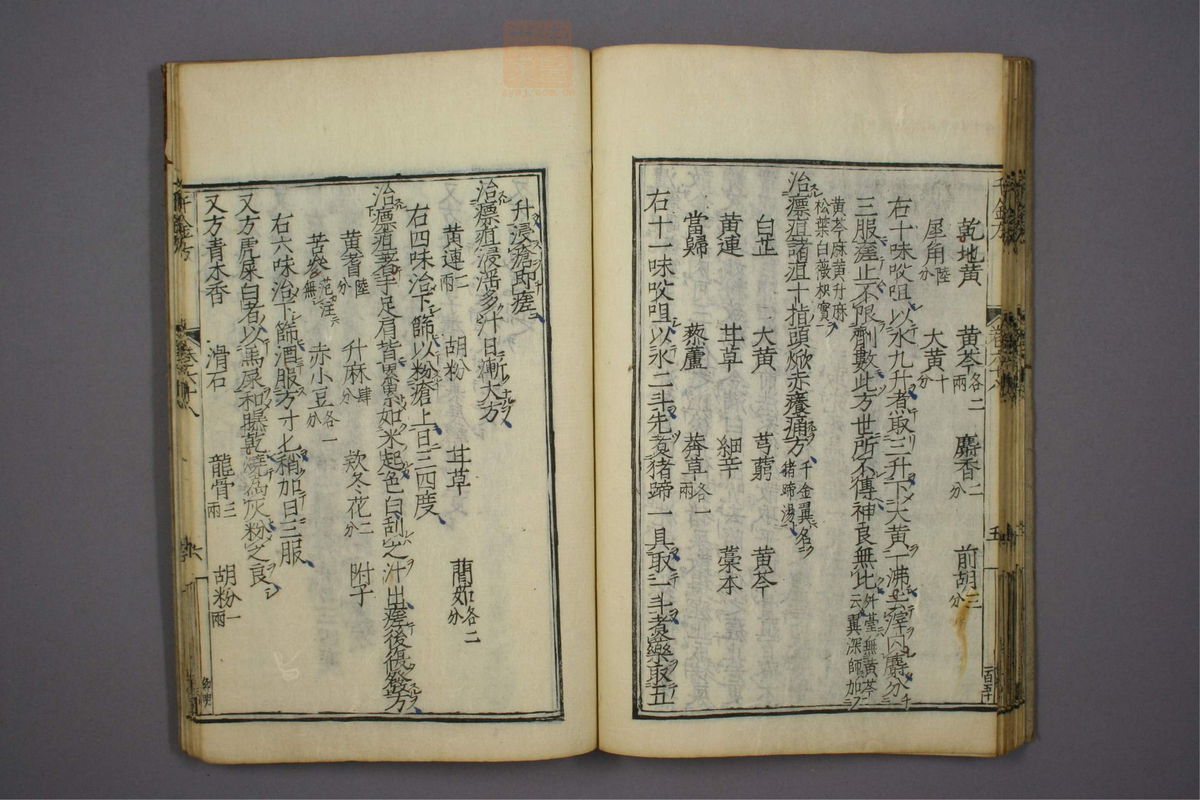 乾地黄 黄芩各二兩 麝香二分 前胡三分
犀角六分陸 大黄十分
右十味㕮咀以水九升煮取三升下大黄一沸去滓内麝分
三服瘥止不限劑數此方世所不傳神良無比外臺無黄芩云翼深師加
黄芩麻黄升麻松葉白薇枳實
治瘭疽諸疽十指頭焮赤癢痛方千金翼名猪蹄湯
白芷 大黄 芎藭 黄芩
黄連 甘草 細辛 藁本
當歸 藜蘆 莽草各一兩
右十一味㕮咀以水二斗先煮猪蹄一具取一斗煮藥取五
升浸瘡即瘥
治瘭疽浸淫多汁日漸大方
黄連二兩 胡粉 甘草 䕡茹各二分
右四味治下篩以粉瘡上日三四度
治瘭疽著手足肩背累累如米起色白刮之汁出瘥後復發方
黄耆陸分 升麻肆分 欵冬花二分 附子
苦參范汪無 赤小豆各一分
右六味治下篩酒服方寸匕稍加日三服
又方虎屎白者以馬屎和曝乾燒為灰粉之良
又方青木香 滑石 龍骨三兩 胡粉一兩
千金方
卷六十八